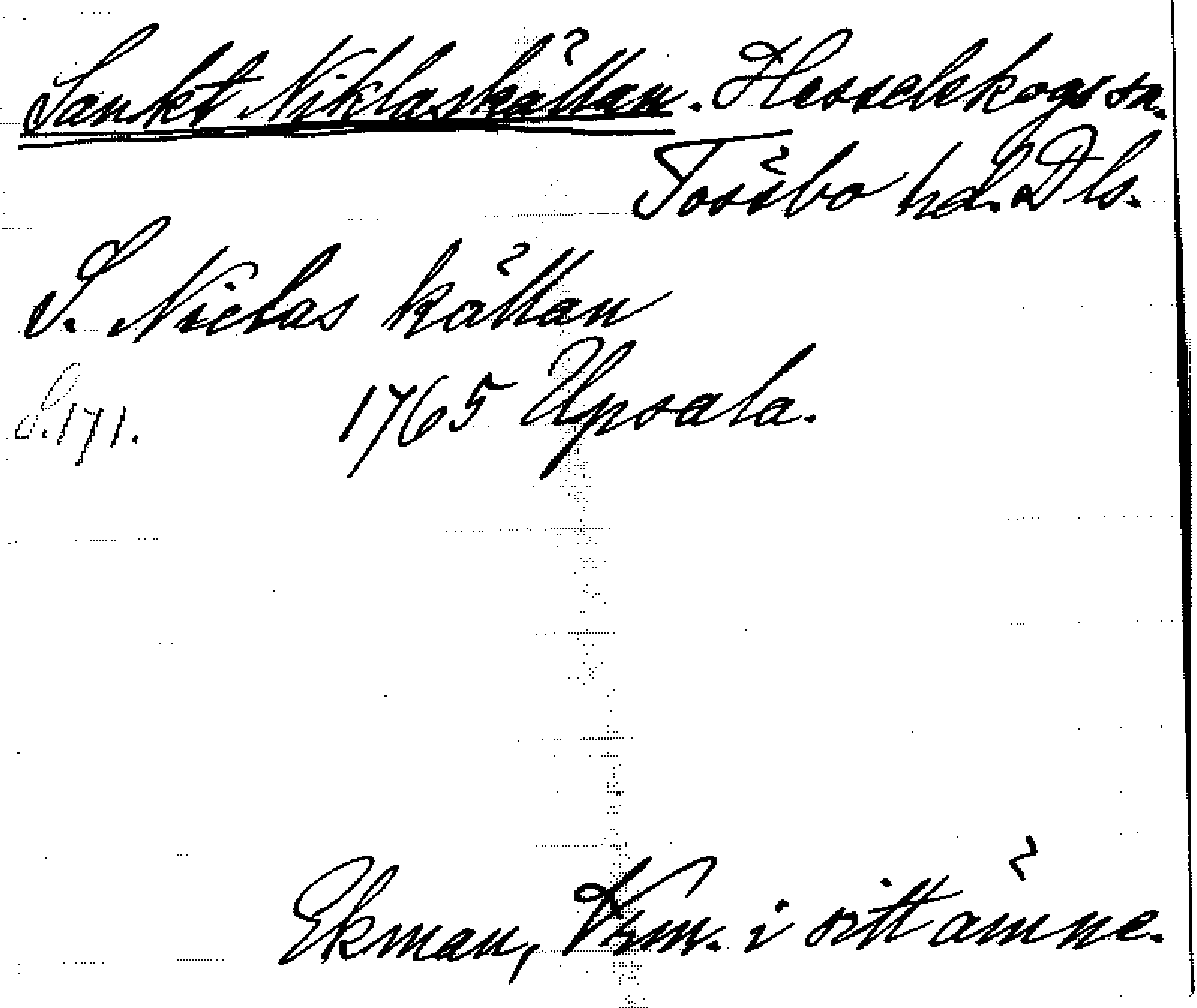 Sankt Niklaskällan. Hesselskogs sn.
Tössbo hd. Dls.
S. Niclas källan
S. 171. 1765 Upsala.
Ekman, Vrm. i sitt ämne.